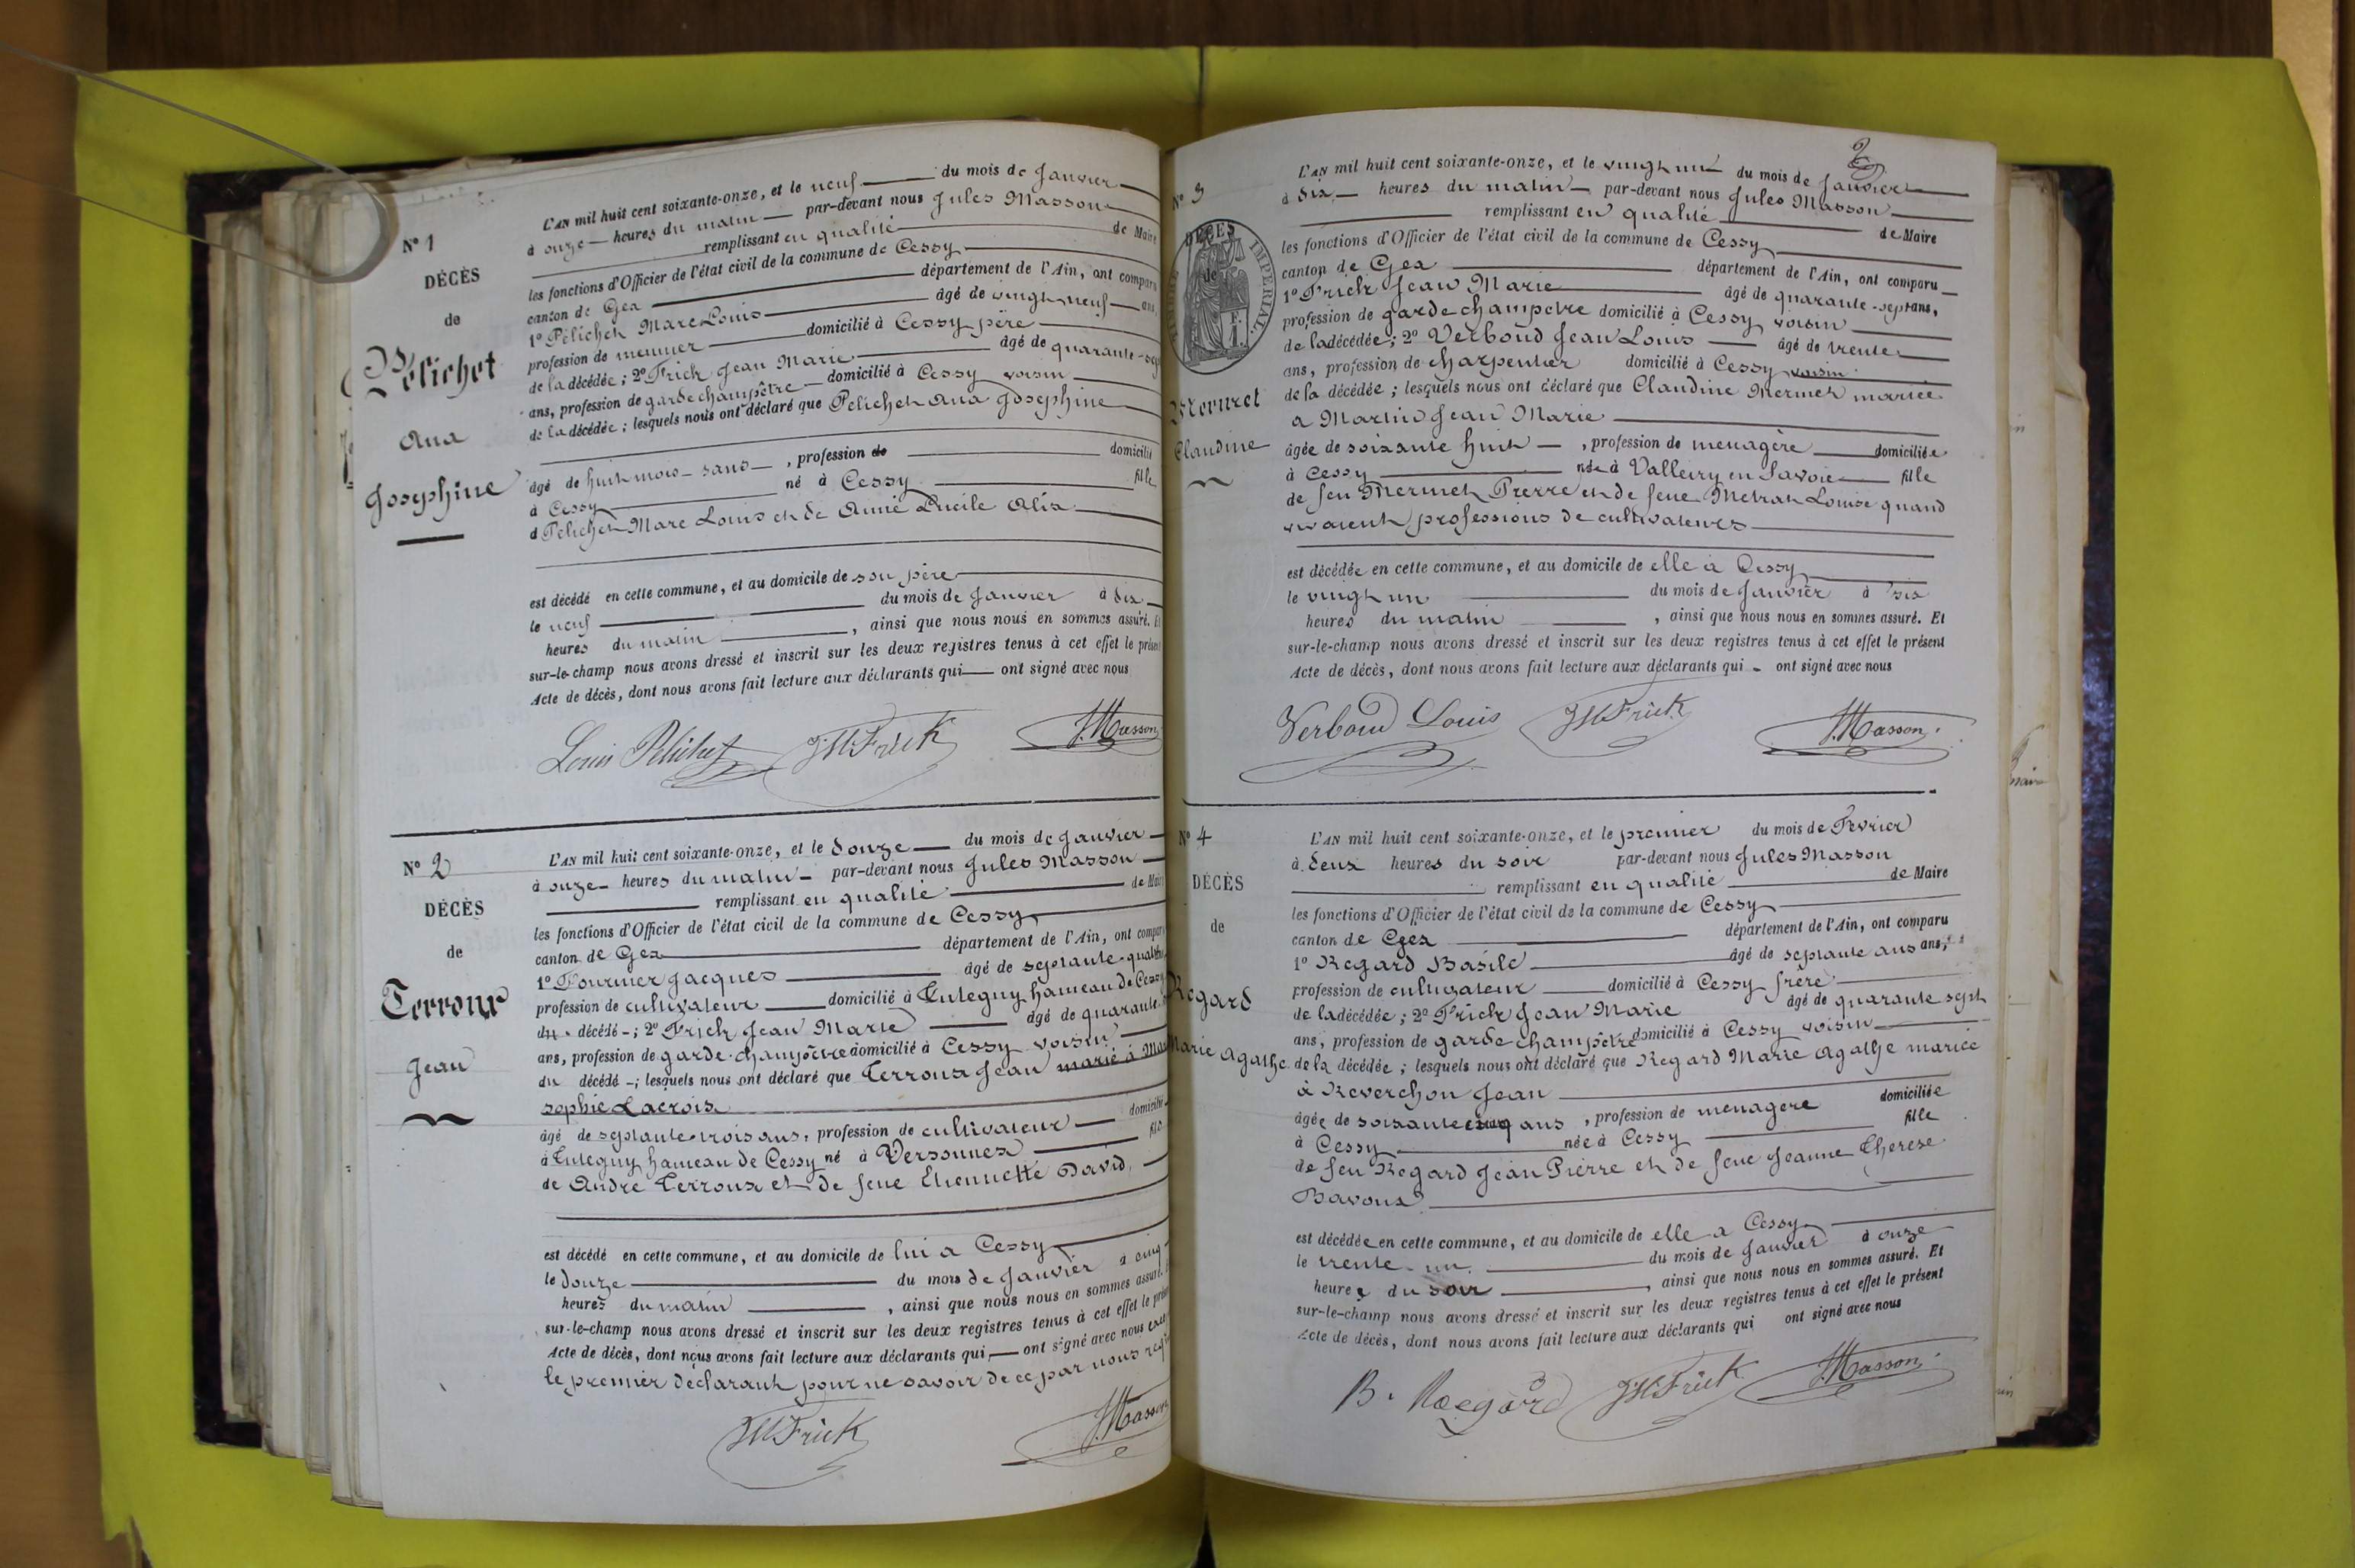 N° 1
DÉCÈS
de
Pélichet
Ana
Josephine
L'AN mil huit cent soixante-onze, et le neuf du mois de Janvier
à onze heures du matin par-devant nous Jules Masson
remplissant en qualité de Maire
les fonctions d'Officier de l'état civil de la commune de Cessy
canton de Gex département de l'Ain, ont comparu
1° Pélichet Marc Louis âgé de vingt neuf ans,
profession de meunier domicilié à Cessy père
de la décédée ; 2° Frick Jean Marie âgé de quarante-sep
ans, profession de garde champêtre domicilié à Cessy voisin
de la décédée ; lesquels nous ont déclaré que Pelichet Ana Josephine
âgé de huit mois sans , profession de domicilié
à Cessy né à Cessy fille
d Pelichet Marc Louis et de Anné Lucile Alix
est décédé en cette commune, et au domicile de son père
le neuf du mois de Janvier à dix
heures du matin , ainsi que nous nous en sommes assuré. Et
sur-le-champ nous avons dressé et inscrit sur les deux registres tenus à cet effet le présent
Acte de décès, dont nous avons fait lecture aux déclarants qui ont signé avec nous
Louis Pélichet JM Frick J. Masson
N° 2
DÉCÈS
de
Terroux
Jean
L'AN mil huit cent soixante-onze, et le douze du mois de Janvier
à onze heures du matin par-devant nous Jules Masson
remplissant en qualité de Maire
les fonctions d'Officier de l'état civil de la commune de Cessy
canton de Gex département de l'Ain, ont comparu
1° Fournier Jacques âgé de septante-quatre
profession de cultivateur domicilié à Tutegny hameau de Cessy
du décédé ; 2° Frick Jean Marie âgé de quarante
ans, profession de garde-champêtre domicilié à Cessy voisin
du décédé ; lesquels nous ont déclaré que Terroux Jean marié à Ma
sophie Lacroix
âgé de septante trois ans, profession de cultivateur domicilié
à Tutegny hameau de Cessy né à Versonnex fils
de André Terroux et de feue Etiennette David,
est décédé en cette commune, et au domicile de lui a Cessy
le douze du mois de Janvier à cinq
heures du matin , ainsi que nous nous en sommes assuré. E
sur-le-champ nous avons dressé et inscrit sur les deux registres tenus à cet effet le prése
Acte de décès, dont nous avons fait lecture aux déclarants qui ont signé avec nous
le premier déclarant pour ne savoir de ce par nous
JM Frick J. Masson
2
N° 3
DÉCÈS
de
IMPÉRIAL.
Mermet
Claudine
L'AN mil huit cent soixante-onze, et le vingt un du mois de Janvier
à dix heures du matin par-devant nous Jules Masson
remplissant en qualité de Maire
les fonctions d'Officier de l'état civil de la commune de Cessy
canton de Gex département de l'Ain, ont comparu
1° Frick Jean Marie âgé de quarante-sept ans,
profession de garde champetre domicilié à Cessy voisin
de la décédée ; 2° Verboud Jean Louis âgé de trente
ans, profession de charpentier domicilié à Cessy voisin
de la décédée ; lesquels nous ont déclaré que Claudine Mermet mariée
a Martin Jean Marie
âgée de soixante huit , profession de menagère domiciliée
à Cessy née à Valleiry en Savoie fille
de feu Mermet Pierre et de feue Metral Louise quand
vivaient professions de cultivateurs
est décédée en cette commune, et au domicile de elle à Cessy
le vingt un du mois de Janvier à six
heures du matin , ainsi que nous nous en sommes assuré. Et
sur-le-champ nous avons dressé et inscrit sur les deux registres tenus à cet effet le présent
Acte de décès, dont nous avons fait lecture aux déclarants qui ont signé avec nous
Verboud Louis JM Frick J. Masson
N° 4
DÉCÈS
de
Regard
Marie Agathe
L'AN mil huit cent soixante-onze, et le premier du mois de Fevrier
à deux heures du soir par-devant nous Jules Masson
remplissant en qualité de Maire
les fonctions d'Officier de l'état civil de la commune de Cessy
canton de Gex département de l'Ain, ont comparu
1° Regard Basile âgé de septante ans ans,
profession de cultivateur domicilié à Cessy frère
de la décédée ; 2° Frick Jean Marie âgé de quarante sept
ans, profession de garde champêtre domicilié à Cessy voisin
de la décédée ; lesquels nous ont déclaré que Regard Marie Agathe mariée
à Reverchon Jean
âgée de soixante cinq ans , profession de menagere domiciliée
à Cessy née à Cessy fille
de feu Regard Jean Pierre et de feue Jeanne Therese
Bavoux
est décédée en cette commune, et au domicile de elle a Cessy
le trente-un du mois de Janvier à onze
heures du soir , ainsi que nous nous en sommes assuré. Et
sur-le-champ nous avons dressé et inscrit sur les deux registres tenus à cet effet le présent
Acte de décès, dont nous avons fait lecture aux déclarants qui ont signé avec nous
B. Raegard JM Frick J. Masson